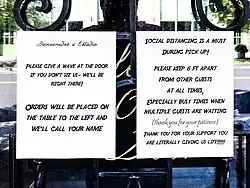 Bienvenidos a Estadio
PLEASE GIVE A WAVE AT THE DOOR
IF YOU DON'T SEE US- WE'LL BE
RIGHT THERE!
ORDERS WILL BE PLACED ON
THE TABLE TO THE LEFT AND
WE'LL CALL YOUR NAME
SOCIAL DISTANCING IS A MUST
DURING PICK UP!
PLEASE KEEP 6 FT APART
FROM OTHER GUESTS
AT ALL TIMES,
ESPECIALLY BUSY TIMES WHEN
MULTIPLE GUESTS ARE WAITING
(thank you for your patience)
THANK YOU FOR YOUR SUPPORT YOU
ARE LITERALLY GIVING US LIFE!!!!!